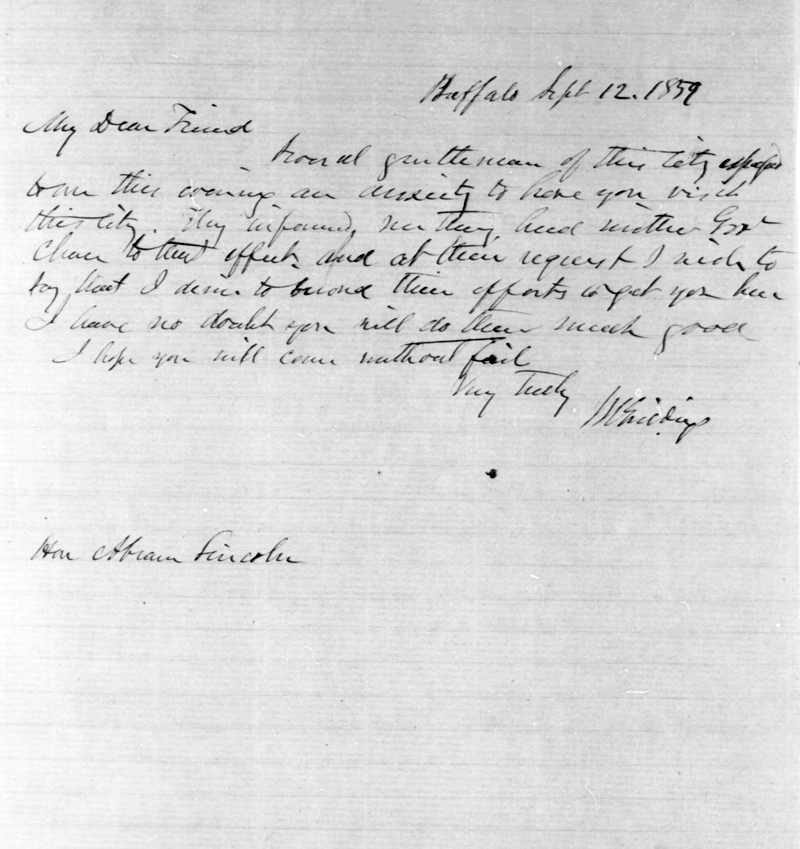 Buffalo Sept 12. 1859
My Dear Friend
Several gentlemen of this City expressed
to me this evening an anxiety to have you visit
this City. They informed me they had written Govr
Chase to that effect and at their request I wish to
say that I desire to second their efforts to get you here
I have no doubt you will do them much good
I hope you will come without fail
Very Truly
J R Giddings
Hon Abram Lincoln